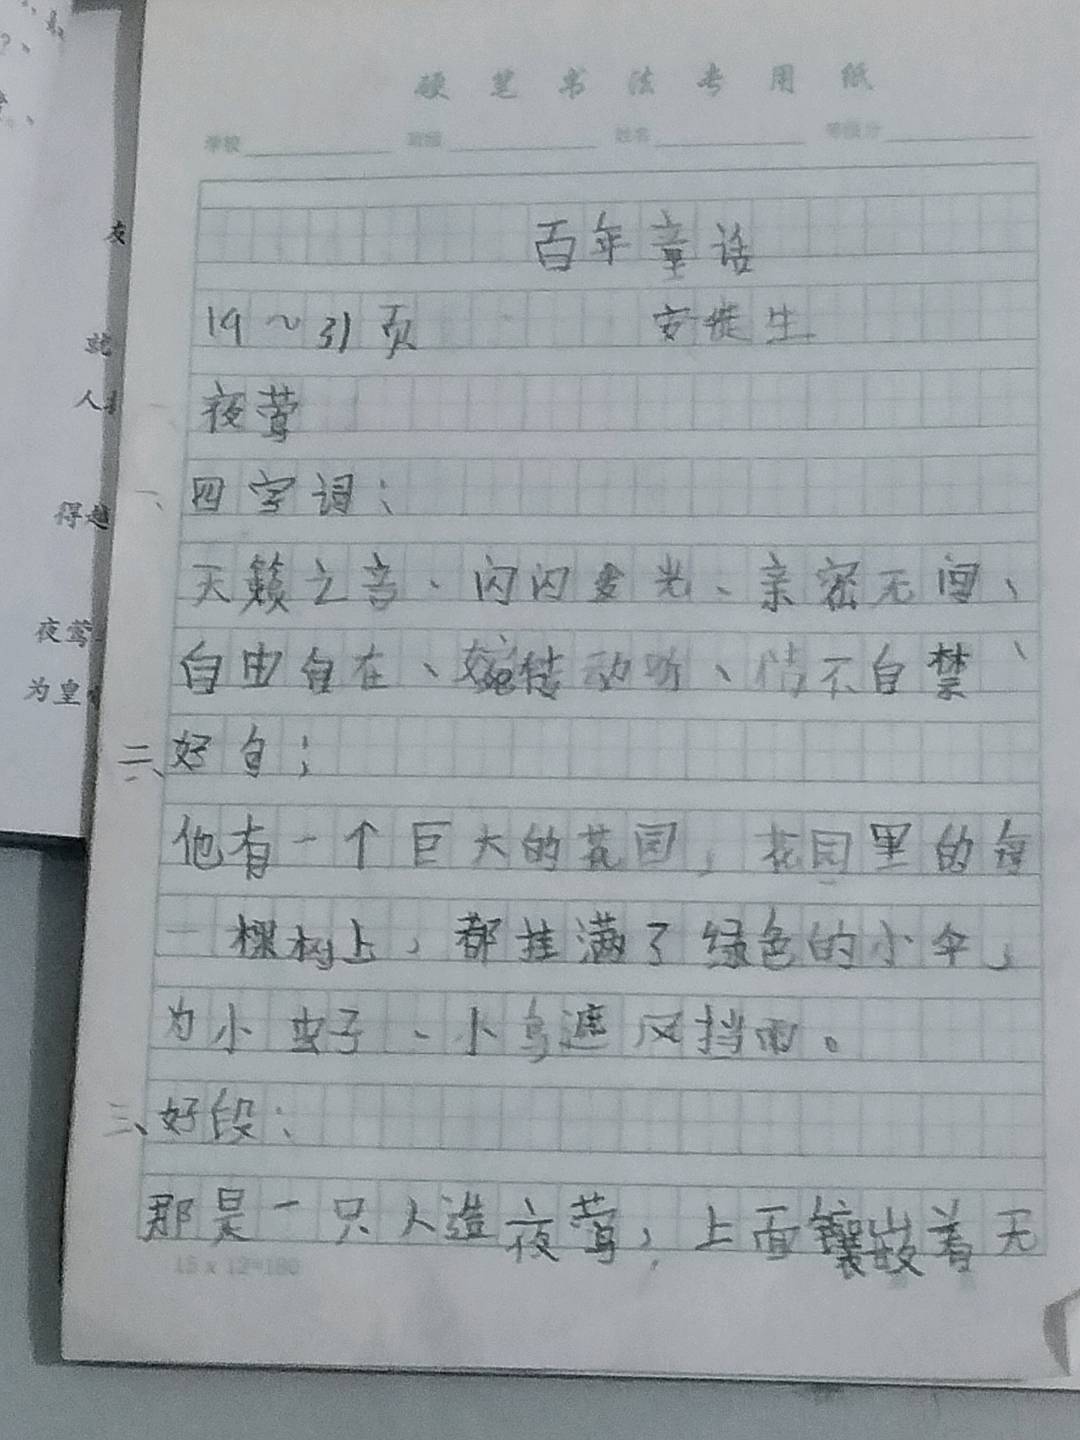 硬笔书法专用纸
学校 班级 姓名 等级分
百年童话
19～31页 安徒生
夜莺
一、四字词：
天籁之音、闪闪发光、亲密无间、
自由自在、婉转动听、情不自禁、
二、好自：
他有一个巨大的花园，花园里的每
一棵树上，都挂满了绿色的小伞，
为小虫子、小鸟遮风挡雨。
三、好段：
那是一只人造夜莺，上面镶嵌着无
15 x 12=180
灰
就
人
得越
夜莺
为皇